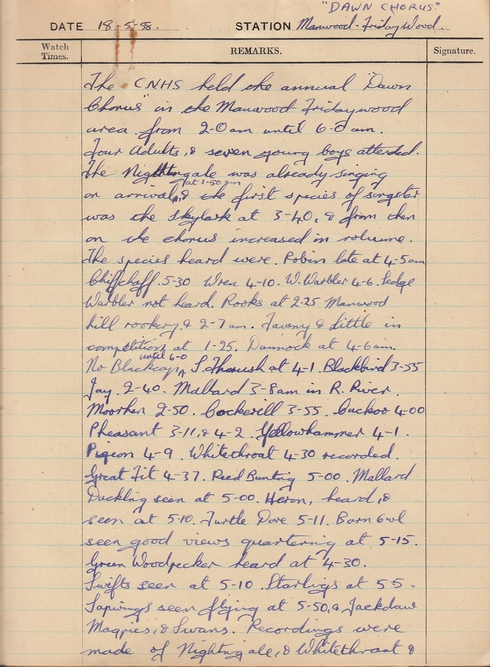 "DAWN CHORUS"
DATE 18-5-58. STATION Manwood-Fridaywood.
Watch Times. REMARKS. Signature.
The CNHS held the annual "Dawn
Chorus" in the Manwood Fridaywood
area from 2-0am until 6-0am.
Four Adults, & seven young boys attended.
The Nightingale was already singing
at 1-50am
on arrival, & the first species of songster
was the skylark at 3-40, & from then
on the chorus increased in volume.
The species heard were. Robin late at 4-5am
Chiffchaff. 5-30 Wren 4-10. W. Warbler 4-6. Sedge
Warbler not heard. Rooks at 2-25 Manwood
hill rookery, & 2-7am. Tawny & Little in
competition at 1-25. Dunnock at 4-6am.
until 6-0
No Blackcap, S. Thrush at 4-1. Blackbird 3-55
Jay. 2-40. Mallard 3-8am in R. River.
Moorhen 2-50. Cockerill 3-55. Cuckoo 4-00
Pheasant 3-11, & 4-2. Yellowhammer 4-1.
Pigeon 4-9. Whitethroat 4-30 recorded.
Great Tit 4-37. Reed Bunting 5-00. Mallard
Duckling seen at 5-00. Heron, heard, &
seen at 5-10. Turtle Dove 5-11. Barn Owl
seen good views quartering at 5-15.
Green Woodpecker heard at 4-30.
Swifts seen at 5-10. Starlings at 5-5.
Lapwings seen flying at 5-50, & Jackdaw
Magpies, & Swans. Recordings were
made of Nightingale, & Whitethroat &